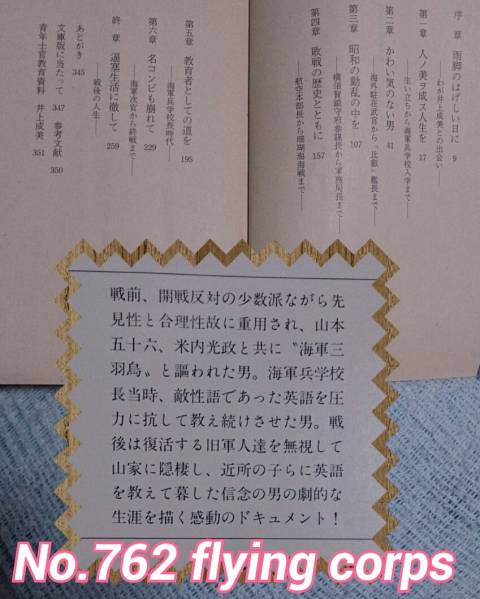 序章 雨脚のはげしい日に 9
――わが井上成美との出会い
第一章 人ノ美ヲ成ス人生を 17
――生い立ちから海軍兵学校入学まで――
第二章 かわい気のない男 41
――海外駐在武官から「比叡」艦長まで――
第三章 昭和の動乱の中を 107
――横須賀鎮守府参謀長から軍務局長まで――
第四章 敗戦の歴史とともに 157
――航空本部長から珊瑚海海戦まで――
第五章 教育者としての道を 195
――海軍兵学校長時代――
第六章 名コンビも崩れて 229
――海軍次官から終戦まで――
終章 逼塞生活に徹して 259
――戦後の人生――
あとがき 345
文庫版に当たって 347 参考文献 350
青年士官教育資料 井上成美 351
戦前、開戦反対の少数派ながら先
見性と合理性故に重用され、山本
五十六、米内光政と共に〝海軍三
羽烏〟と謳われた男。海軍兵学校
長当時、敵性語であった英語を圧
力に抗して教え続けさせた男。戦
後は復活する旧軍人達を無視して
山家に隠棲し、近所の子らに英語
を教えて暮した信念の男の劇的な
生涯を描く感動のドキュメント！
No.762 flying corps